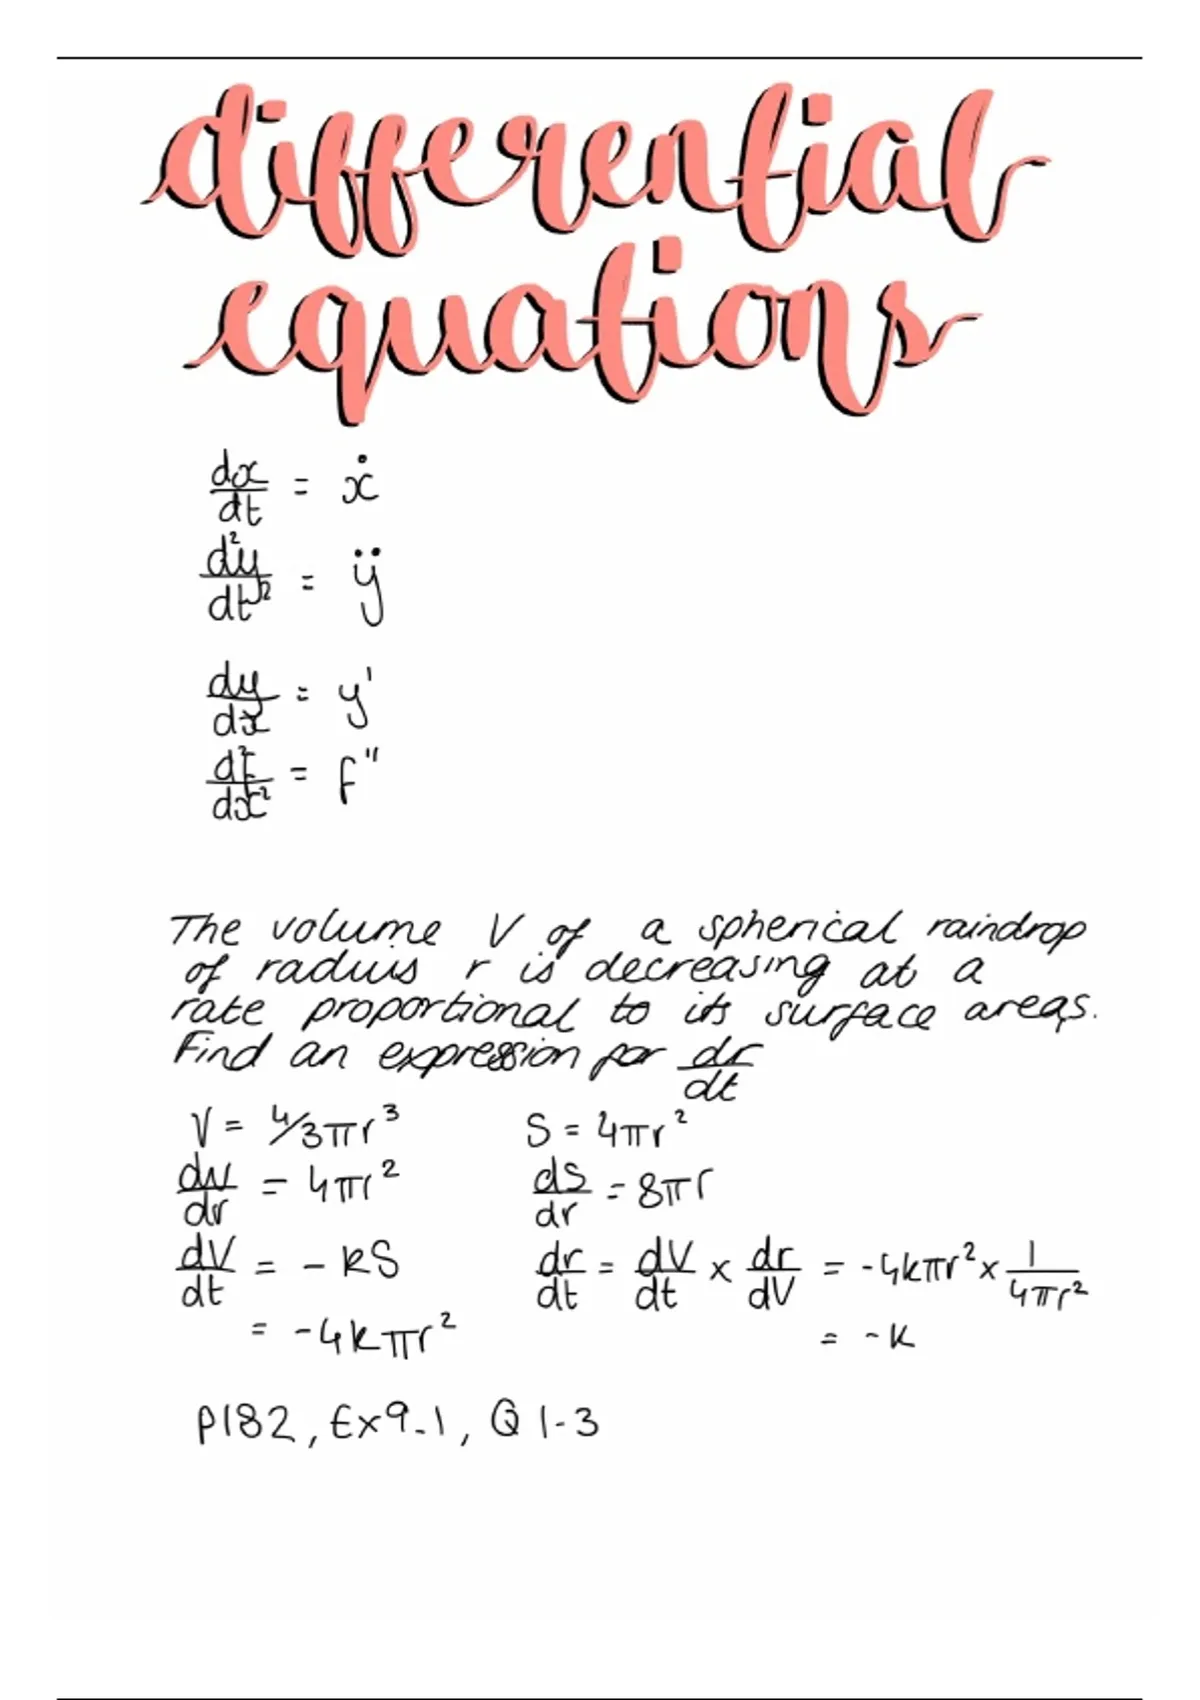 differential
equations
dx/dt = ẋ
d²y/dt² = ÿ
dy/dx = y'
d²f/dx² = f"
The volume V of a spherical raindrop
of radius r is decreasing at a
rate proportional to its surface areas.
Find an expression for dr/dt
V = 4/3πr³ S = 4πr²
dv/dr = 4πr² ds/dr = 8πr
dV/dt = - kS dr/dt = dV/dt × dr/dV = -4kπr² × 1/4πr²
= -4kπr² = -k
P182, Ex9.1, Q 1-3